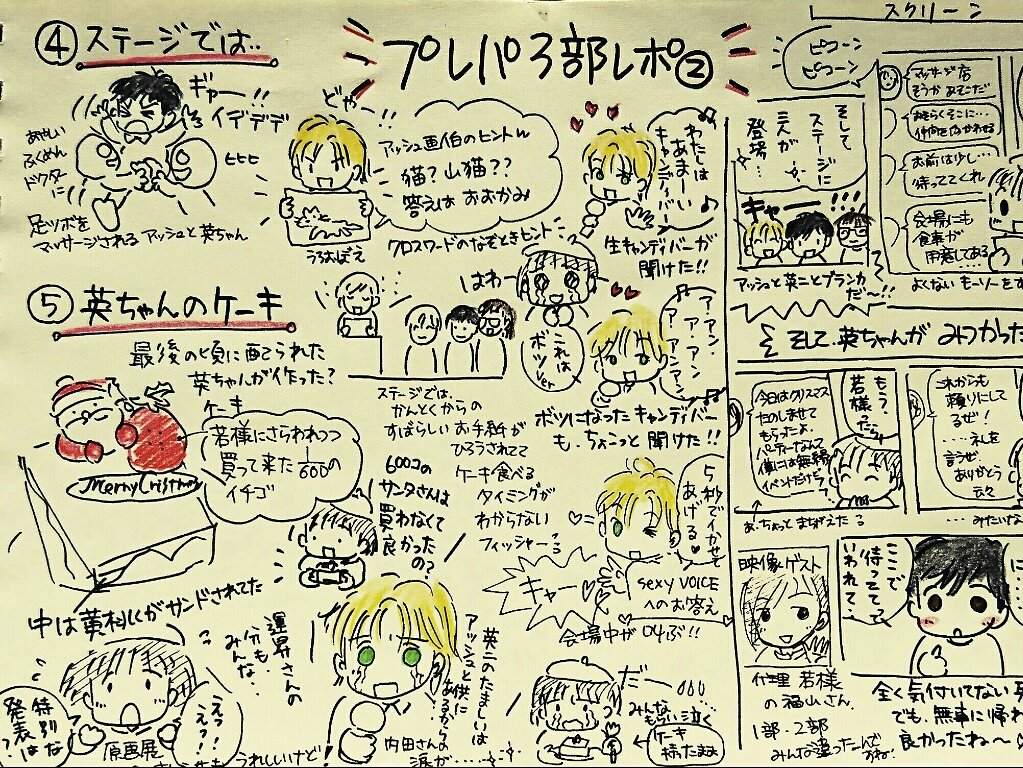 プレパ3部レポ②
④ステージでは..
ギャー!!
イデデデ
あやしい
ふくめん
ドクター
に
ヒヒヒ
足ツボを
マッサージされる アッシュと英ちゃん
どやー!!
アッシュ画伯のヒントw
猫?山猫??
答えは おおかみ
うろおぼえ
クロスワードのなぞときヒント
わたしは
あまーい
キャンディバー
生キャンディバーが
聞けた!!
はわー
これは
ボツ
ver
ア・アン・
ア・ア・
アンアン
ボツになったキャンディバー
も、ちょこっと 聞けた!!
⑤英ちゃんのケーキ
最後の頃に配られた
英ちゃんが作った?
ケーキ
Merry Cristmas
若様にさらわれつつ
買って来た 1/600の
イチゴ
600コの
サンタさんは
買わなくて
良かったの?
中は黄桃がサンドされてた
ステージでは、
かんとくからの
すばらしい お手紙が
ひろうされてて
ケーキ食べる
タイミングが
わからない
フィッシャーっ
5秒でイかせて
あげる
キャー
sexy VOICE
へのお答え
会場中が叫ぶ!!
特別な
発表は
原画展
えっ?
えっ!
うれしいけど!
運昇さんの
分も
みんな..
英二のたましいは
アッシュと供に
あるからの
内田さんの
涙が......
だー
みんな
もらい泣く
ケーキ
持ったまま
スクリーン
ピコーン
ピコーン
そして
ステージに
三人が
登場
キャー!!!
アッシュと英二とブランカ
だ〜!!
マッサージ店
そうか あそこだ
おそらくそこに...
お前は少し...
待っててくれ
会場にも
食事が
用意してある...
よくない モーソーをす
そして、英ちゃんが みつかった
今日はクリスマス
たのしませて
もらったよ。
パーティーなんて
僕には無縁
イベントだけど。
もう?
若様たら
あ、ちょっとまちがえたる
これからも
頼りにして
るぜ!
....礼を
言うぜ
ありがとう
云々
...みたいな
映像ゲスト
代理 若様
の福山さん
1部・2部
みんな違ったんで
すね。
ここで
待ってろって
いわれて、
に...
全く気付いてない
でも、無事に帰れ
良かったね〜